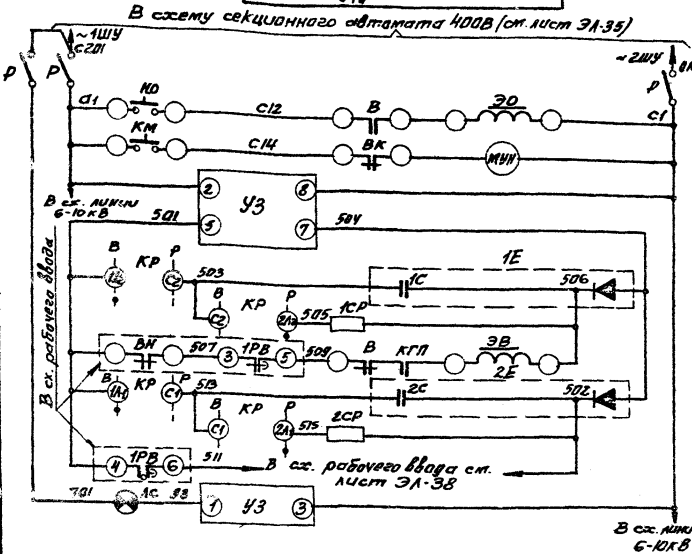 В схему секционного автомата 400В (см. лист ЭЛ-35)
~1ШУ
С201
~2ШУ
Р Р Р
а1 КО С12 В ЭО С1
КМ С14 ВК МУН
2 УЗ 8
В сх. линии
6-10кВ
501 5 7 504
В сх. рабочего ввода
1Е
В КР Р 503 1С 506
С2
В КР Р 505 1СР
С2 2А2
ВН 507 3 1РВ 5 509 В КГП ЭВ
2Е
В КР Р 513 2С 502
1А1 С1
В КР Р 515 2СР
С1 2А1
4 1РВ 6 511
В сх. рабочего ввода см.
лист ЭЛ-38
701 ЛС 93 1 УЗ 3
В сх. линии
6-10кВ